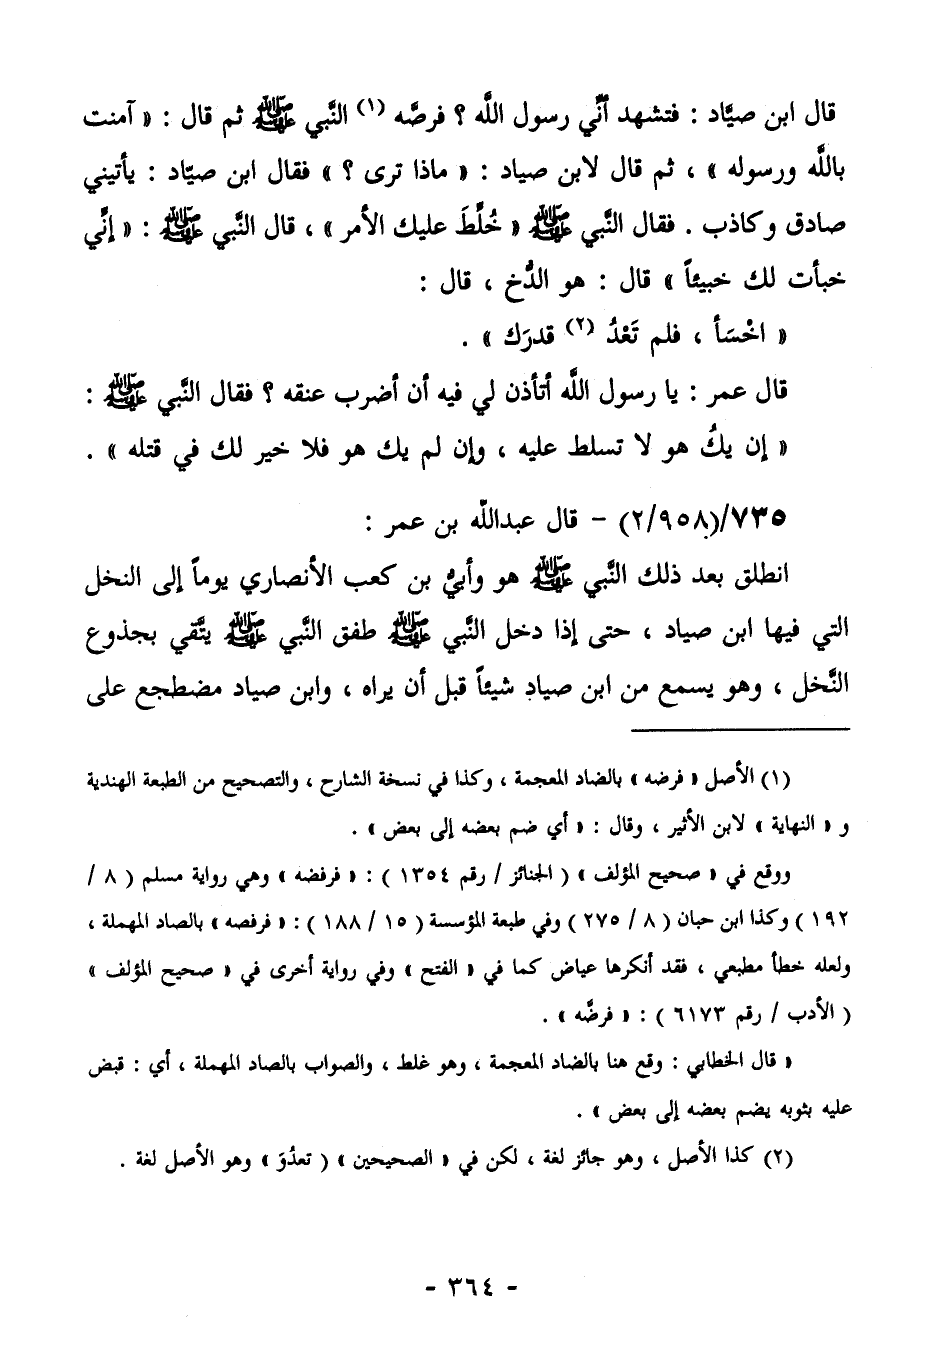 قال ابن صيَّاد : فتشهد أنِّي رسول اللَّه ؟ فرصَّه (١) النَّبي ﷺ ثم قال : « آمنت
باللَّه ورسوله » ، ثم قال لابن صياد : « ماذا ترى ؟ » فقال ابن صيّاد : يأتيني
صادق وكاذب . فقال النَّبي ﷺ « خُلِّطَ عليك الأمر » ، قال النَّبي ﷺ : « إنِّي
خبأت لك خبيئاً » قال : هو الدُّخ ، قال :
« اخْسَأ ، فلم تَعْدُ (٢) قدرَك » .
قال عمر : يا رسول اللَّه أتأذن لي فيه أن أضرب عنقه ؟ فقال النَّبي ﷺ :
« إن يكُ هو لا تسلط عليه ، وإن لم يك هو فلا خير لك في قتله » .
٧٣٥/(٢/٩٥٨) - قال عبداللَّه بن عمر :
انطلق بعد ذلك النَّبي ﷺ هو وأبيُّ بن كعب الأنصاري يوماً إلى النخل
التي فيها ابن صياد ، حتى إذا دخل النَّبي ﷺ طفق النَّبي ﷺ يتَّقي بجذوع
النَّخل ، وهو يسمع من ابن صيادٍ شيئاً قبل أن يراه ، وابن صياد مضطجع على
(١) الأصل « فرضه » بالضاد المعجمة ، وكذا في نسخة الشارح ، والتصحيح من الطبعة الهندية
و « النهاية » لابن الأثير ، وقال : « أي ضم بعضه إلى بعض » .
ووقع في « صحيح المؤلف » ( الجنائز / رقم ١٣٥٤ ) : « فرفضه » وهي رواية مسلم ( ٨ /
١٩٢ ) وكذا ابن حبان ( ٨ / ٢٧٥ ) وفي طبعة المؤسسة ( ١٥ / ١٨٨ ) : « فرفصه » بالصاد المهملة ،
ولعله خطأ مطبعي ، فقد أنكرها عياض كما في « الفتح » وفي رواية أخرى في « صحيح المؤلف »
( الأدب / رقم ٦١٧٣ ) : « فرضَّه » .
« قال الخطابي : وقع هنا بالضاد المعجمة ، وهو غلط ، والصواب بالصاد المهملة ، أي : قبض
عليه بثوبه يضم بعضه إلى بعض » .
(٢) كذا الأصل ، وهو جائز لغة ، لكن في « الصحيحين » ( تعدُوَ » وهو الأصل لغة .
- ٣٦٤ -